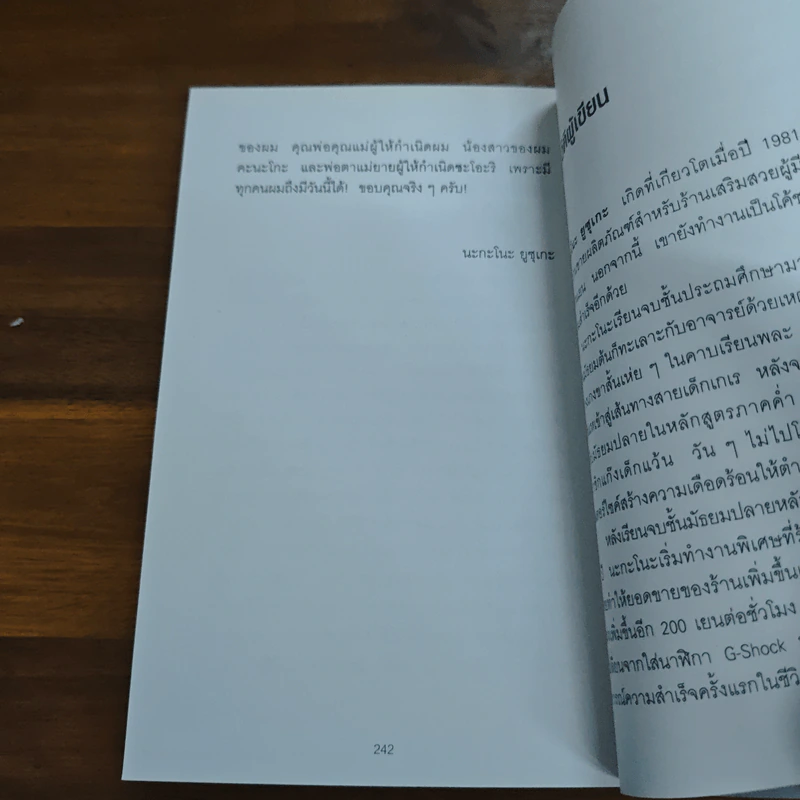 ของผม คุณพ่อคุณแม่ผู้ให้กำเนิดผม น้องสาวของผม
คะนะโกะ และพ่อตาแม่ยายผู้ให้กำเนิดซะโอะริ เพราะมี
ทุกคนผมถึงมีวันนี้ได้! ขอบคุณจริง ๆ ครับ!
นะกะโนะ ยูซุเกะ
242
ผู้เขียน
ยูซุเกะ เกิดที่เกียวโตเมื่อปี 1981
ขายผลิตภัณฑ์สำหรับร้านเสริมสวยผู้มี
นอกจากนี้ เขายังทำงานเป็นโค้ช
อีกด้วย
นะกะโนะเรียนจบชั้นประถมศึกษามา
ก็ทะเลาะกับอาจารย์ด้วยเหตุ
ขาสั้นเห่ย ๆ ในคาบเรียนพละ
เข้าสู่เส้นทางสายเด็กเกเร หลังจ
มัธยมปลายในหลักสูตรภาคค่ำ
แก๊งเด็กแว้น วัน ๆ ไม่ไปโ
สร้างความเดือดร้อนให้ตำ
หลังเรียนจบชั้นมัธยมปลายหลั
นะกะโนะเริ่มทำงานพิเศษที่ร้
ทำให้ยอดขายของร้านเพิ่มขึ้น
เพิ่มขึ้นอีก 200 เยนต่อชั่วโมง
จากใส่นาฬิกา G-Shock
ความสำเร็จครั้งแรกในชีวิ